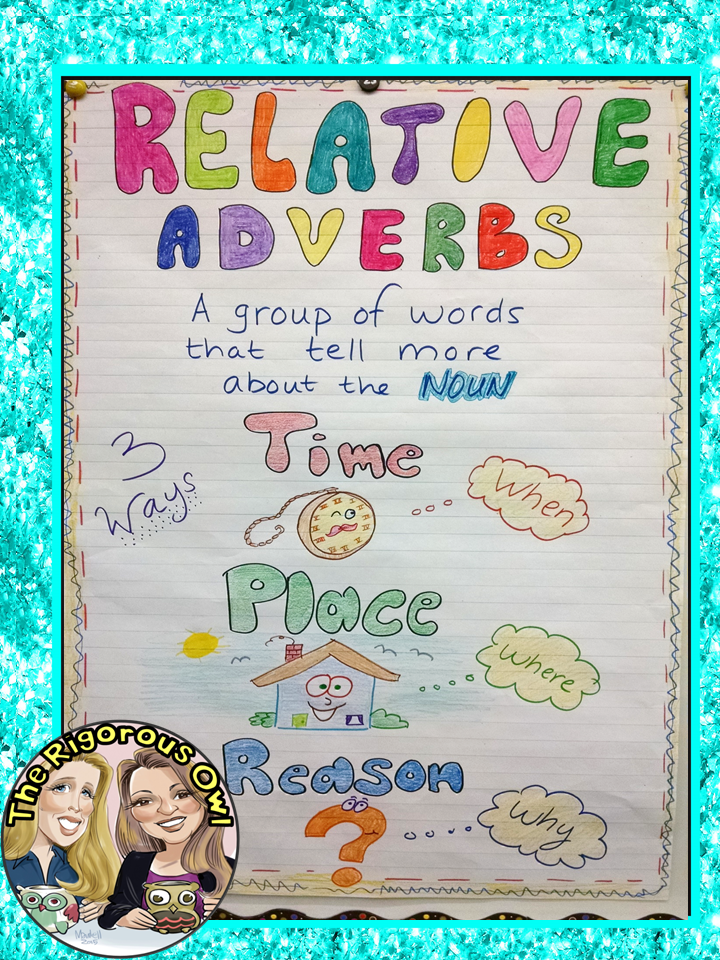 RELATIVE
ADVERBS
A group of words
that tell more
about the NOUN
3
Ways
Time
When
Place
where
Reason
why
The Rigorous Owl